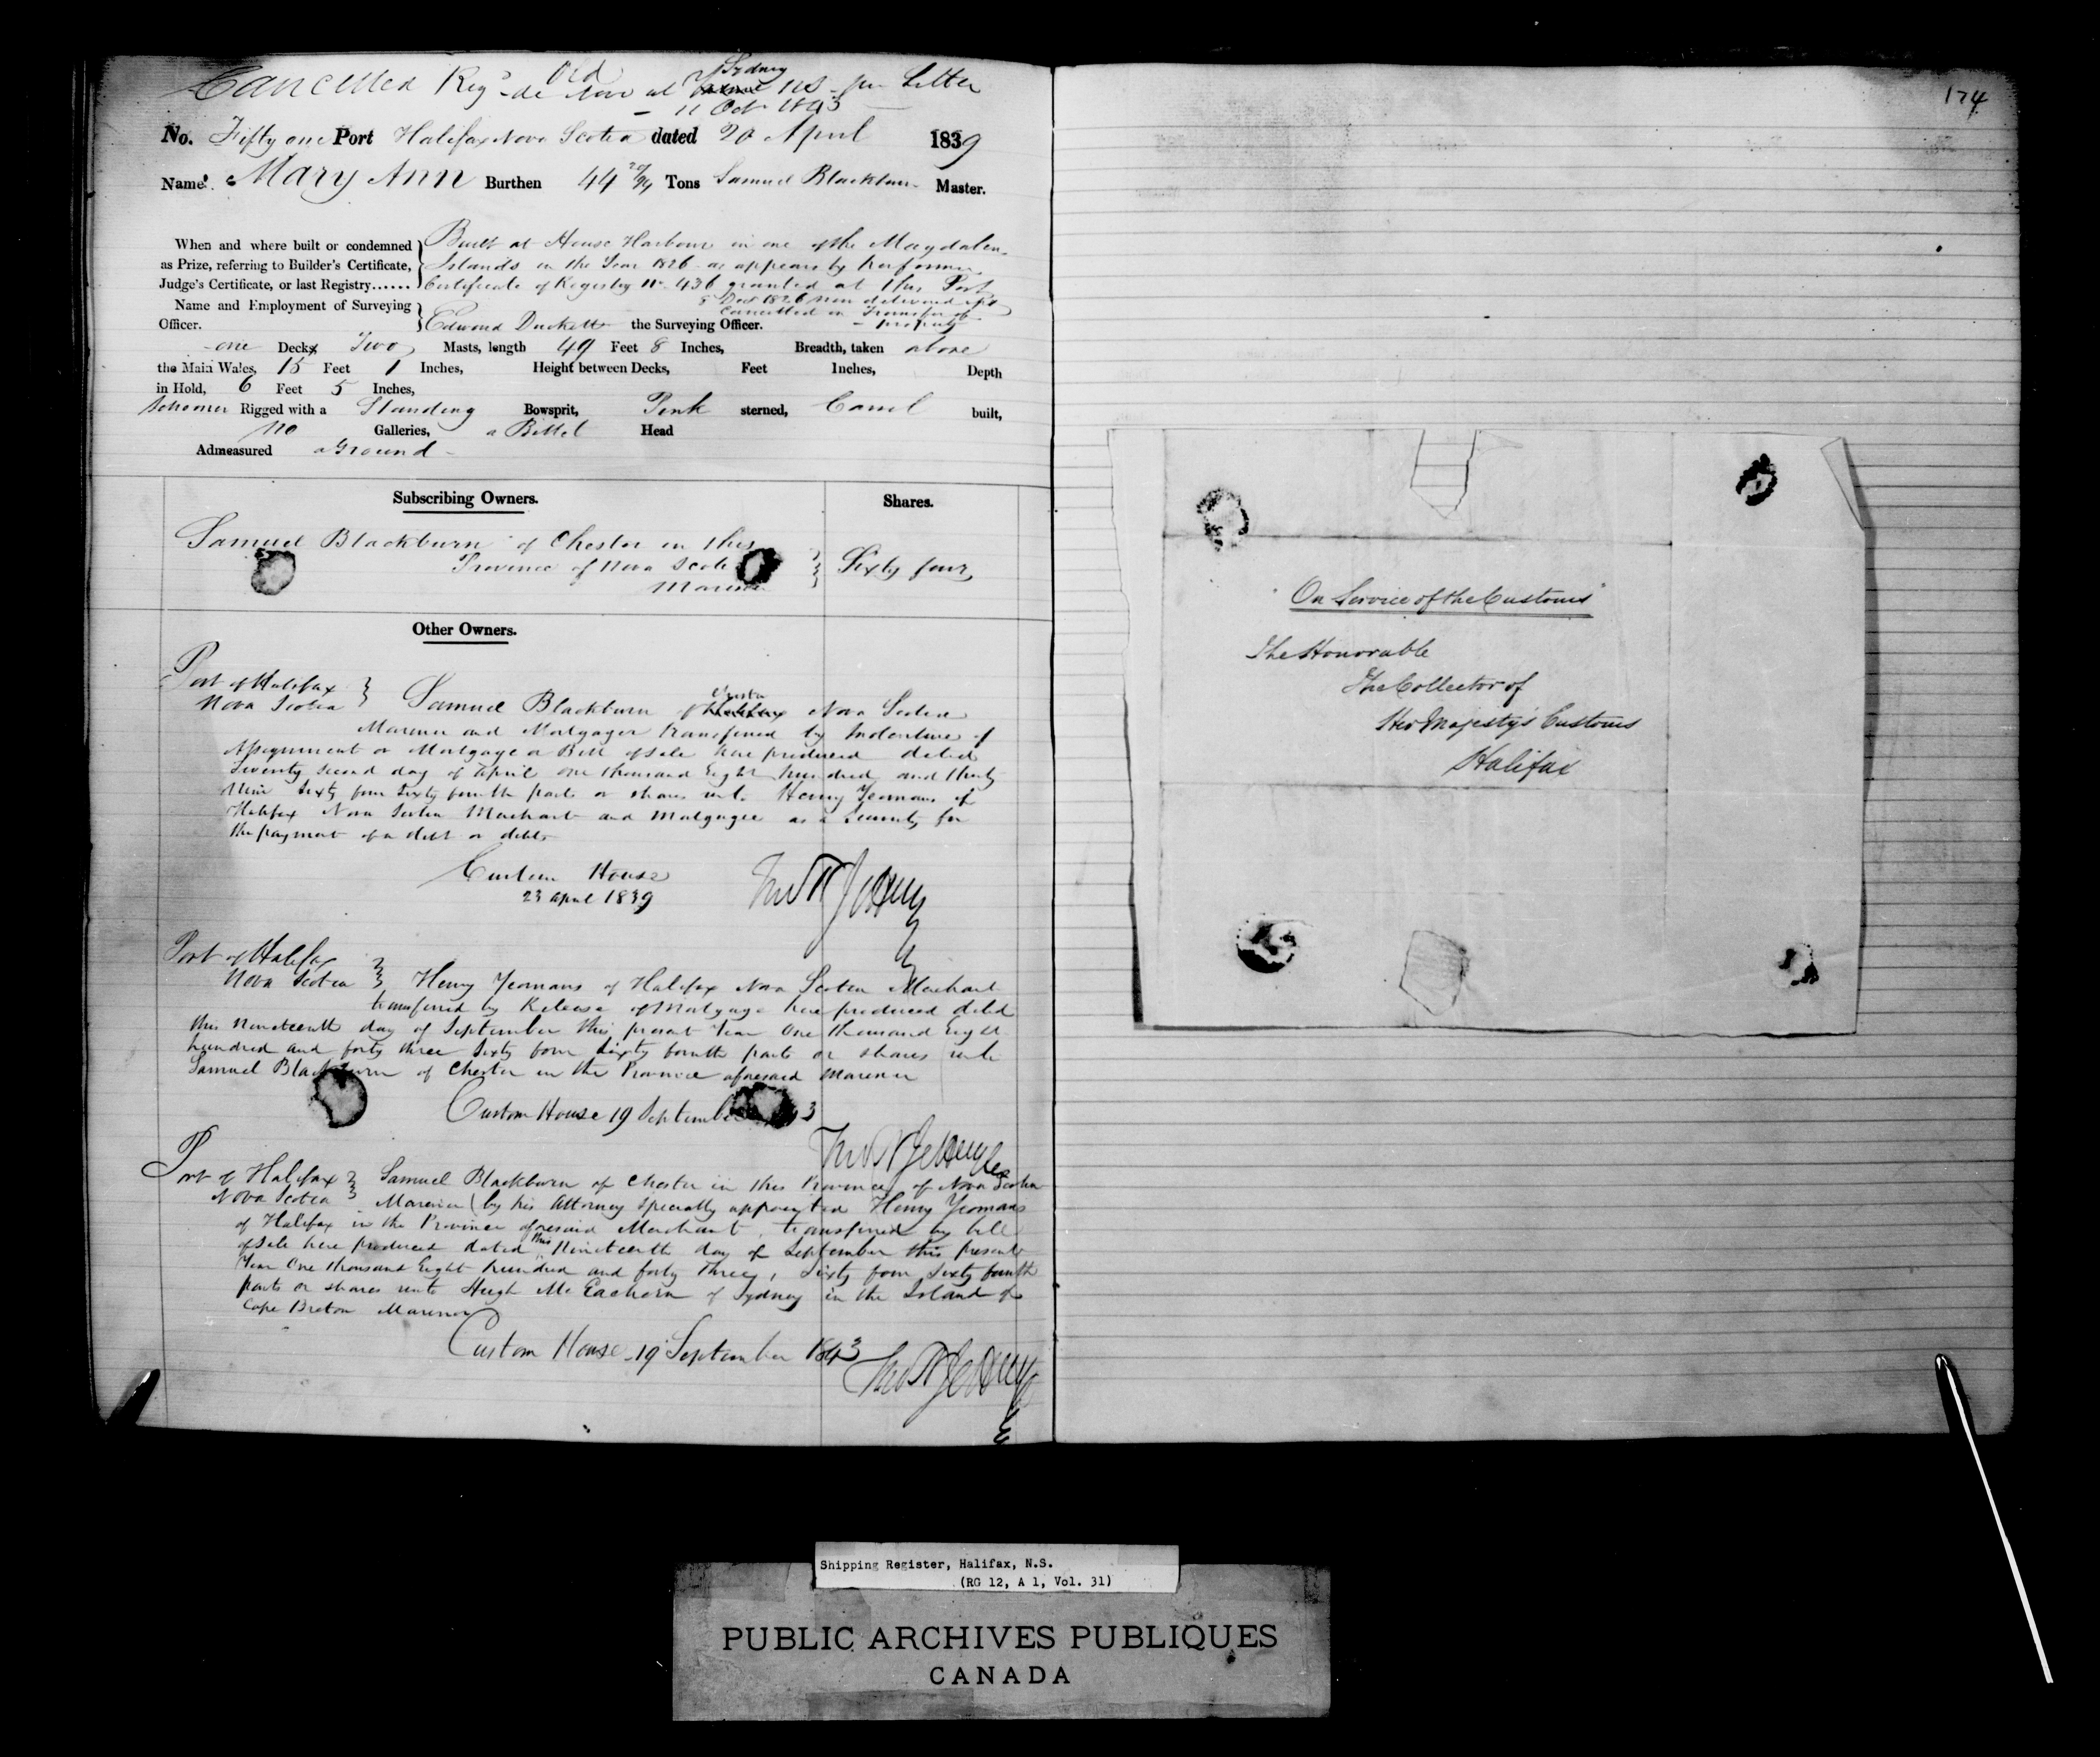 Cancelled Reg'd de novo at Sydney NS - per Letter
Old
- 11 Oct 1843 -
No. Fifty one Port Halifax Nova Scotia dated 20 April 1839
Name Mary Ann Burthen 44 Tons Samuel Blackburn Master.
When and where built or condemned
as Prize, referring to Builder's Certificate,
Judge's Certificate, or last Registry......
Built at House Harbour in one of the Magdalen
Islands in the Year 1826 as appears by her former
Certificate of Registry No. 436 granted at this Port
8 Dec 1826 now delivered up &
Cancelled on Transfer of
property
Name and Employment of Surveying
Officer.
Edward Duckett the Surveying Officer.
one Decks Two Masts, length 49 Feet 8 Inches, Breadth, taken above
the Main Wales, 15 Feet 1 Inches, Height between Decks, Feet Inches, Depth
in Hold, 6 Feet 5 Inches,
Schooner Rigged with a Standing Bowsprit, Pink sterned, Carvel built,
no Galleries, a Billet Head
Admeasured aGround
Subscribing Owners.
Shares.
Samuel Blackburn of Chester in this
Province of Nova Scotia
Mariner
Sixty four
Other Owners.
Port of Halifax
Nova Scotia
Samuel Blackburn of Halifax Nova Scotia
Chester
Mariner and Mortgager transferred by Indenture of
Assignment or Mortgage or Bill of Sale here produced dated
Twenty second day of April one thousand Eight hundred and thirty
Nine Sixty four Sixty fourth parts or shares unto Henry Yeomans of
Halifax Nova Scotia Merchant and Mortgagee as a Security for
the payment of a debt or debts
Custom House
23 april 1839
Thos N Jeffery
Port of Halifax
Nova Scotia
Henry Yeomans of Halifax Nova Scotia Merchant
transferred by Release of Mortgage here produced dated
this Nineteenth day of September this present Year One thousand Eight
hundred and forty three Sixty four Sixty fourth parts or shares unto
Samuel Blackburn of Chester in the Province aforesaid Mariner
Custom House 19 September 3
Thos N Jeffery
Port of Halifax
Nova Scotia
Samuel Blackburn of Chester in this Province of Nova Scotia
Mariner (by his Attorney specially appointed Henry Yeomans
of Halifax in the Province aforesaid Merchant, transferred by bill
of Sale here produced dated this Nineteenth day of September this present
Year One thousand Eight hundred and forty Three, Sixty four Sixty fourth
parts or shares unto Hugh McEachern of Sydney in the Island of
Cape Breton Mariner
Custom House 19 September 1843
Thos N Jeffery
174
"On Service of the Customs"
The Honorable
The Collector of
Her Majesty's Customs
Halifax
Shipping Register, Halifax, N.S.
(RG 12, A 1, Vol. 31)
PUBLIC ARCHIVES PUBLIQUES
CANADA